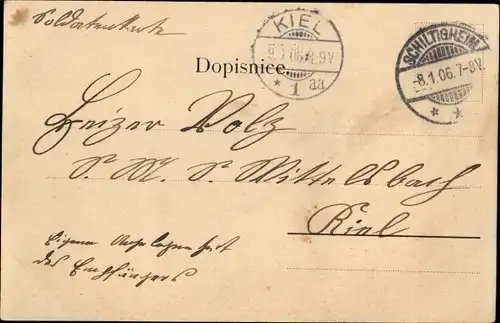 Soldatenkarte
KIEL
9.1.06.8-9V.
* 1 aa
SCHILTIGHEIM.
-8.1.06.7-8V.
* *
Dopisnice.
Heizer Volz
S. M. S. Wittelsbach
Kiel
Eigene Angelegenheit
des Empfängers